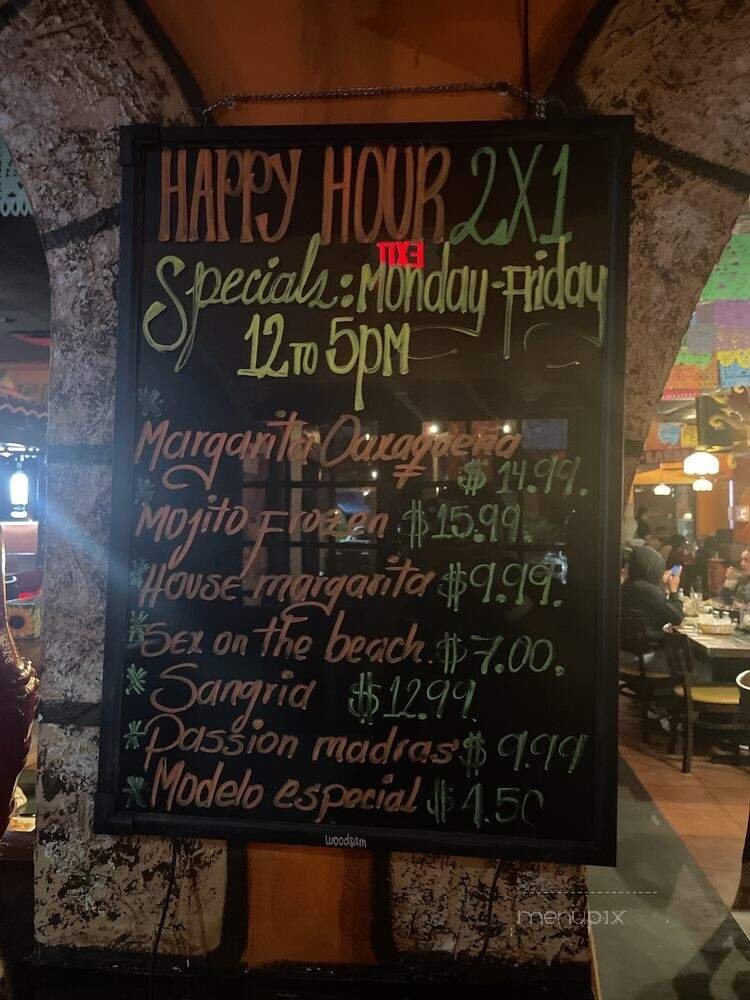 HAPPY HOUR 2X1
EXIT
Specials: Monday-Friday
12 TO 5PM
* Margarita Oaxaqueña
$ 14.99.
* Mojito Frozen $15.99.
* House margarita $9.99.
* Sex on the beach. $7.00.
* Sangria $12.99
* Passion madras $ 9.99
* Modelo especial $4.50
woodsam
menupix